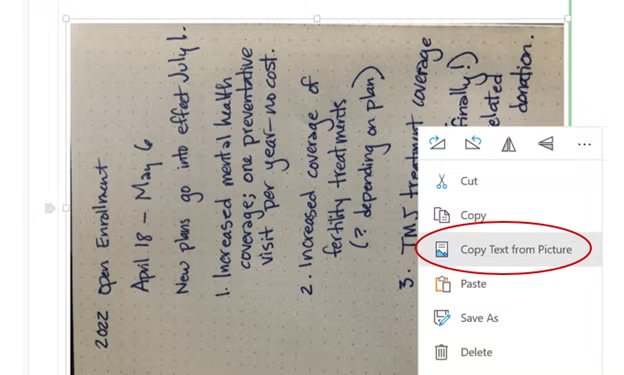 2022 Open Enrollment
April 18 – May 6
New plans go into effect July 1.
1. Increased mental health
coverage; one preventative
visit per year – no cost.
2. Increased coverage of
fertility treatments
(? depending on plan)
3. TMJ treatment coverage
finally!)
elated
donation.
Cut
Copy
Copy Text from Picture
Paste
Save As
Delete